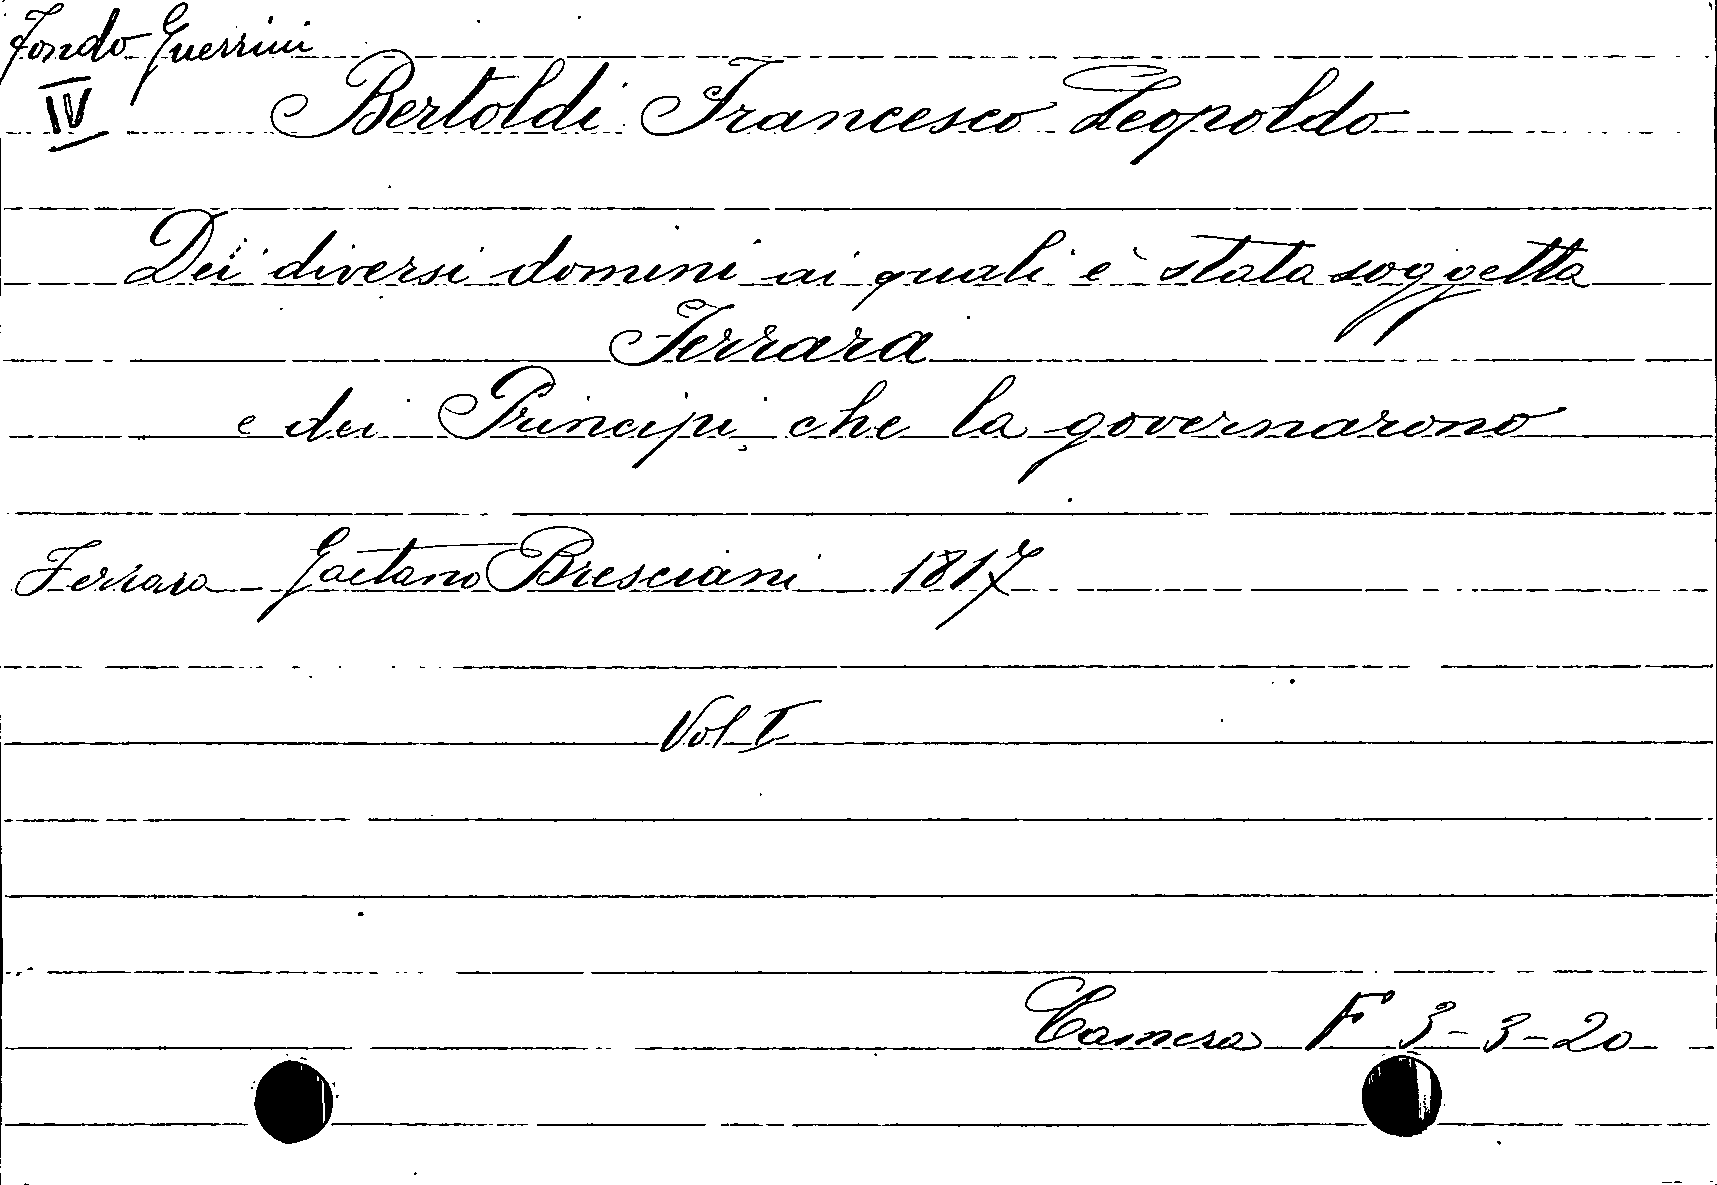 Fondo Guerrini
IV Bertoldi Francesco Leopoldo
Dei diversi domini ai quali è stata soggetta
Ferrara
e dei Principi che la governarono
Ferrara Gaetano Bresciani 1817
Vol I
Camera F 3-3-20